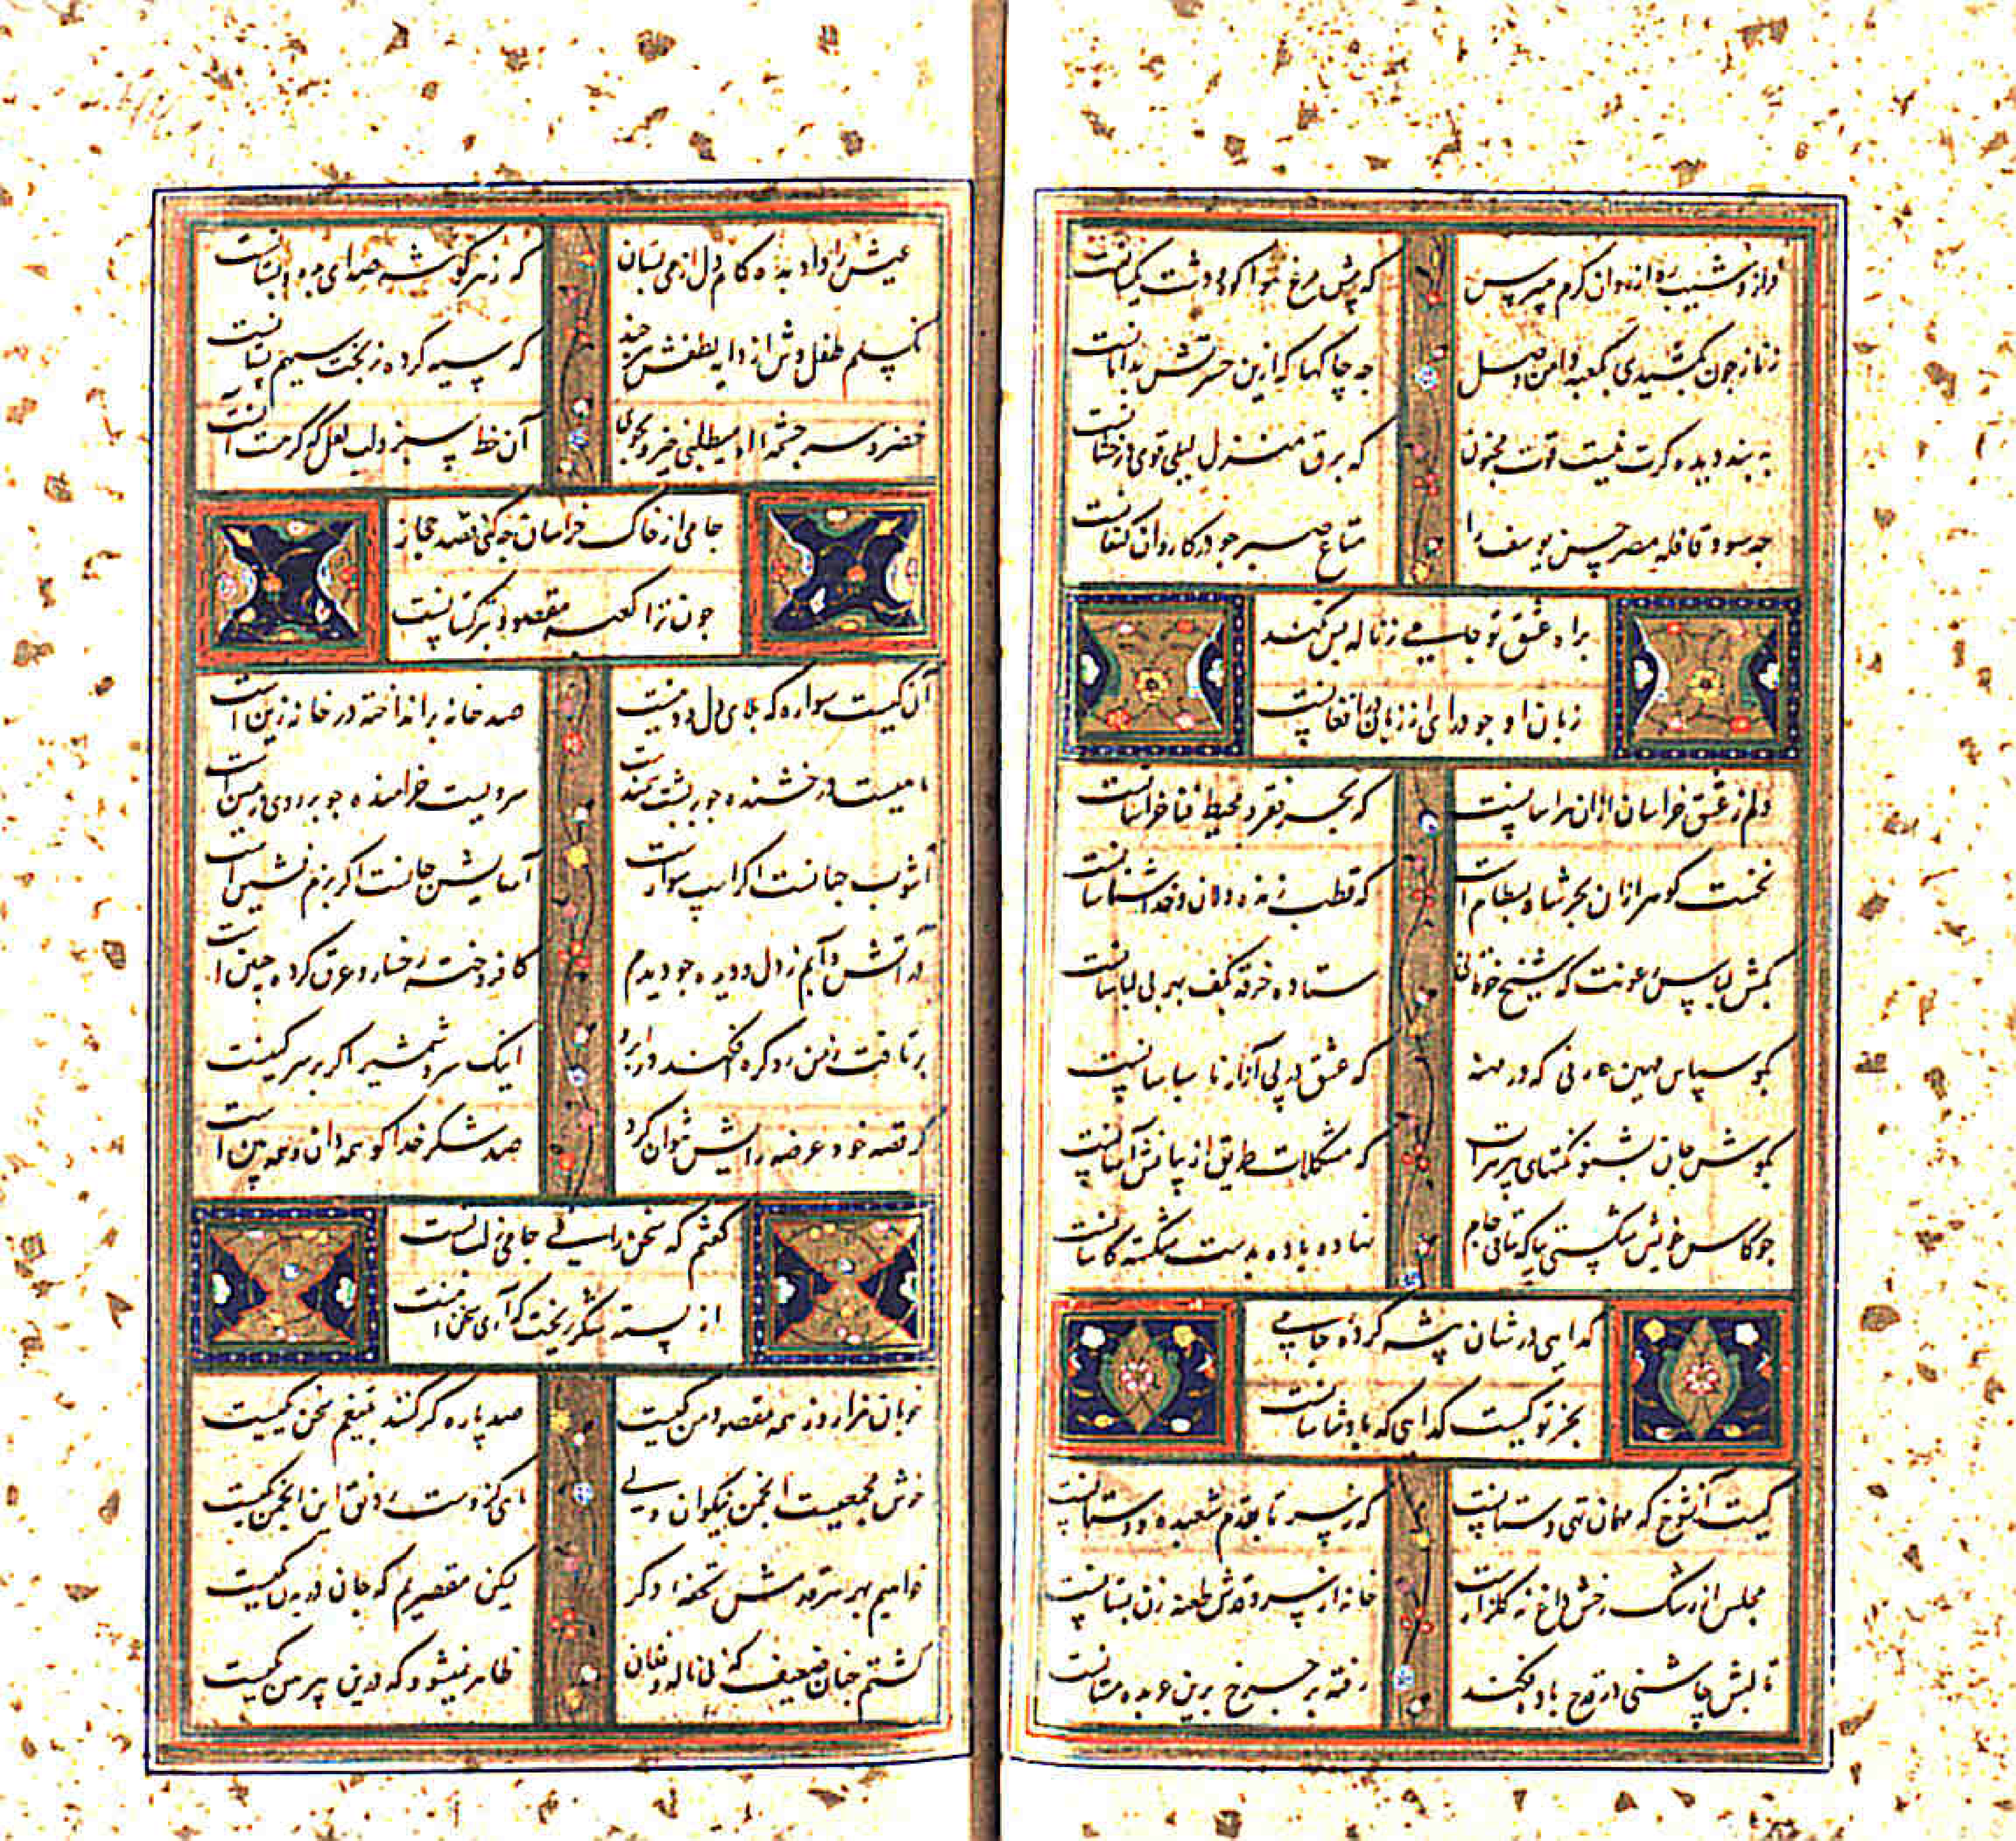 فراز و شیب ره از رهروان کرم مپرس
که پیش مرغ هوا کوه و دشت یکسانست
ز ناز چون نکشیدی بکعبه دامن وصل
چه چاکها که ازین حسرتش بدامانست
به بند دیده کرت نیست قوت مجنون
که برق منزل لیلی قوی درخشانست
چه سود قافله مصر حسن یوسف را
متاع صبر چو در کاروان کنعانست
براه عشق تو جامی ز ناله بس نکند
زبان او چو درای از زبان افغانست
دلم ز عشق خراسان ازان هراسانست
که بحر فقر و محیط فنا خراسانست
نخست کوهر ازان بحر شاه بسطام است
که قطب زنده دلان و خداشناسانست
بکش لباس رعونت که شیخ خرقانی
ستاده خرقه بکف بهر بی لباسانست
بکو سپاس مهین عارفی که در مهنه
که عشق در پی آزار ناسپاسانست
بکوش جان بشنو نکتهای پیر هرات
که مشکلات طریق از بیانش آسانست
چو کاس خویش شکستی بیا که ساقی جام
نهاده باده بدست شکسته کاسانست
کدایی در شان پیشه کرده جامی
بجز تو کیست کدایی که پادشاسانست
کیست آن شوخ که مهمان تهی دستانست
که ز سر تا بقدم شعبده و دستانست
مجلس از رشک رخش داغ نه کلزارست
خانه از سرو قدش طعنه زن بستانست
تا لبش چاشنی در قدح باده فکند
رفته بر چرخ برین عربده مستانست
عیش را داد بده کام دل از می بستان
که ز هر کوشه صدای بده و بستانست
نکسلم طفل وش از دایه لطفش هر چند
که سیه کرده ز بخت سیهم پستانست
خضر و سرچشمه او میطلبی خیز و بجوی
آن خط سبز و لب لعل کرت آن است
جامی از خاک خراسان چه کنی قصد حجاز
چون ترا کعبه مقصود بترکستانست
آن کیست سواره که بلای دل و دینست
صد خانه برانداخته در خانه زین است
ماهیست درخشنده چو بر پشت سمند است
سرویست خرامنده چو بر روی زمین است
آشوب جهانست اکر اسپ سوارست
آسایش جانست اکر بزم نشین است
در آتش و آبم ز دل و دیده چو دیدم
کافروخته رخسار و عرق کرده جبین است
بر تافت ز من رو کره افکند در ابرو
اینک سر و شمشیر اکر بر سر کینست
کر قصه خود عرضه برایش نتوان کرد
صد شکر خدا کو همه دان و همه بین است
کفتم که سخن راست جامی ز لب تست
از پسته شکر ریخت که آری سخن اینست
خوبان هزار و از همه مقصود من یکیست
صد پاره کر کنند بتیغم سخن یکیست
خوش مجمعیست انجمن نیکوان ولی
ماهی کزوست رونق این انجمن یکیست
خواهیم بهر هر قدمش تحفه دکر
لیکن مقصریم که جان در بدن یکیست
کشتم چنان ضعیف که بی ناله و فغان
ظاهر نمیشود که درین پیرهن یکیست